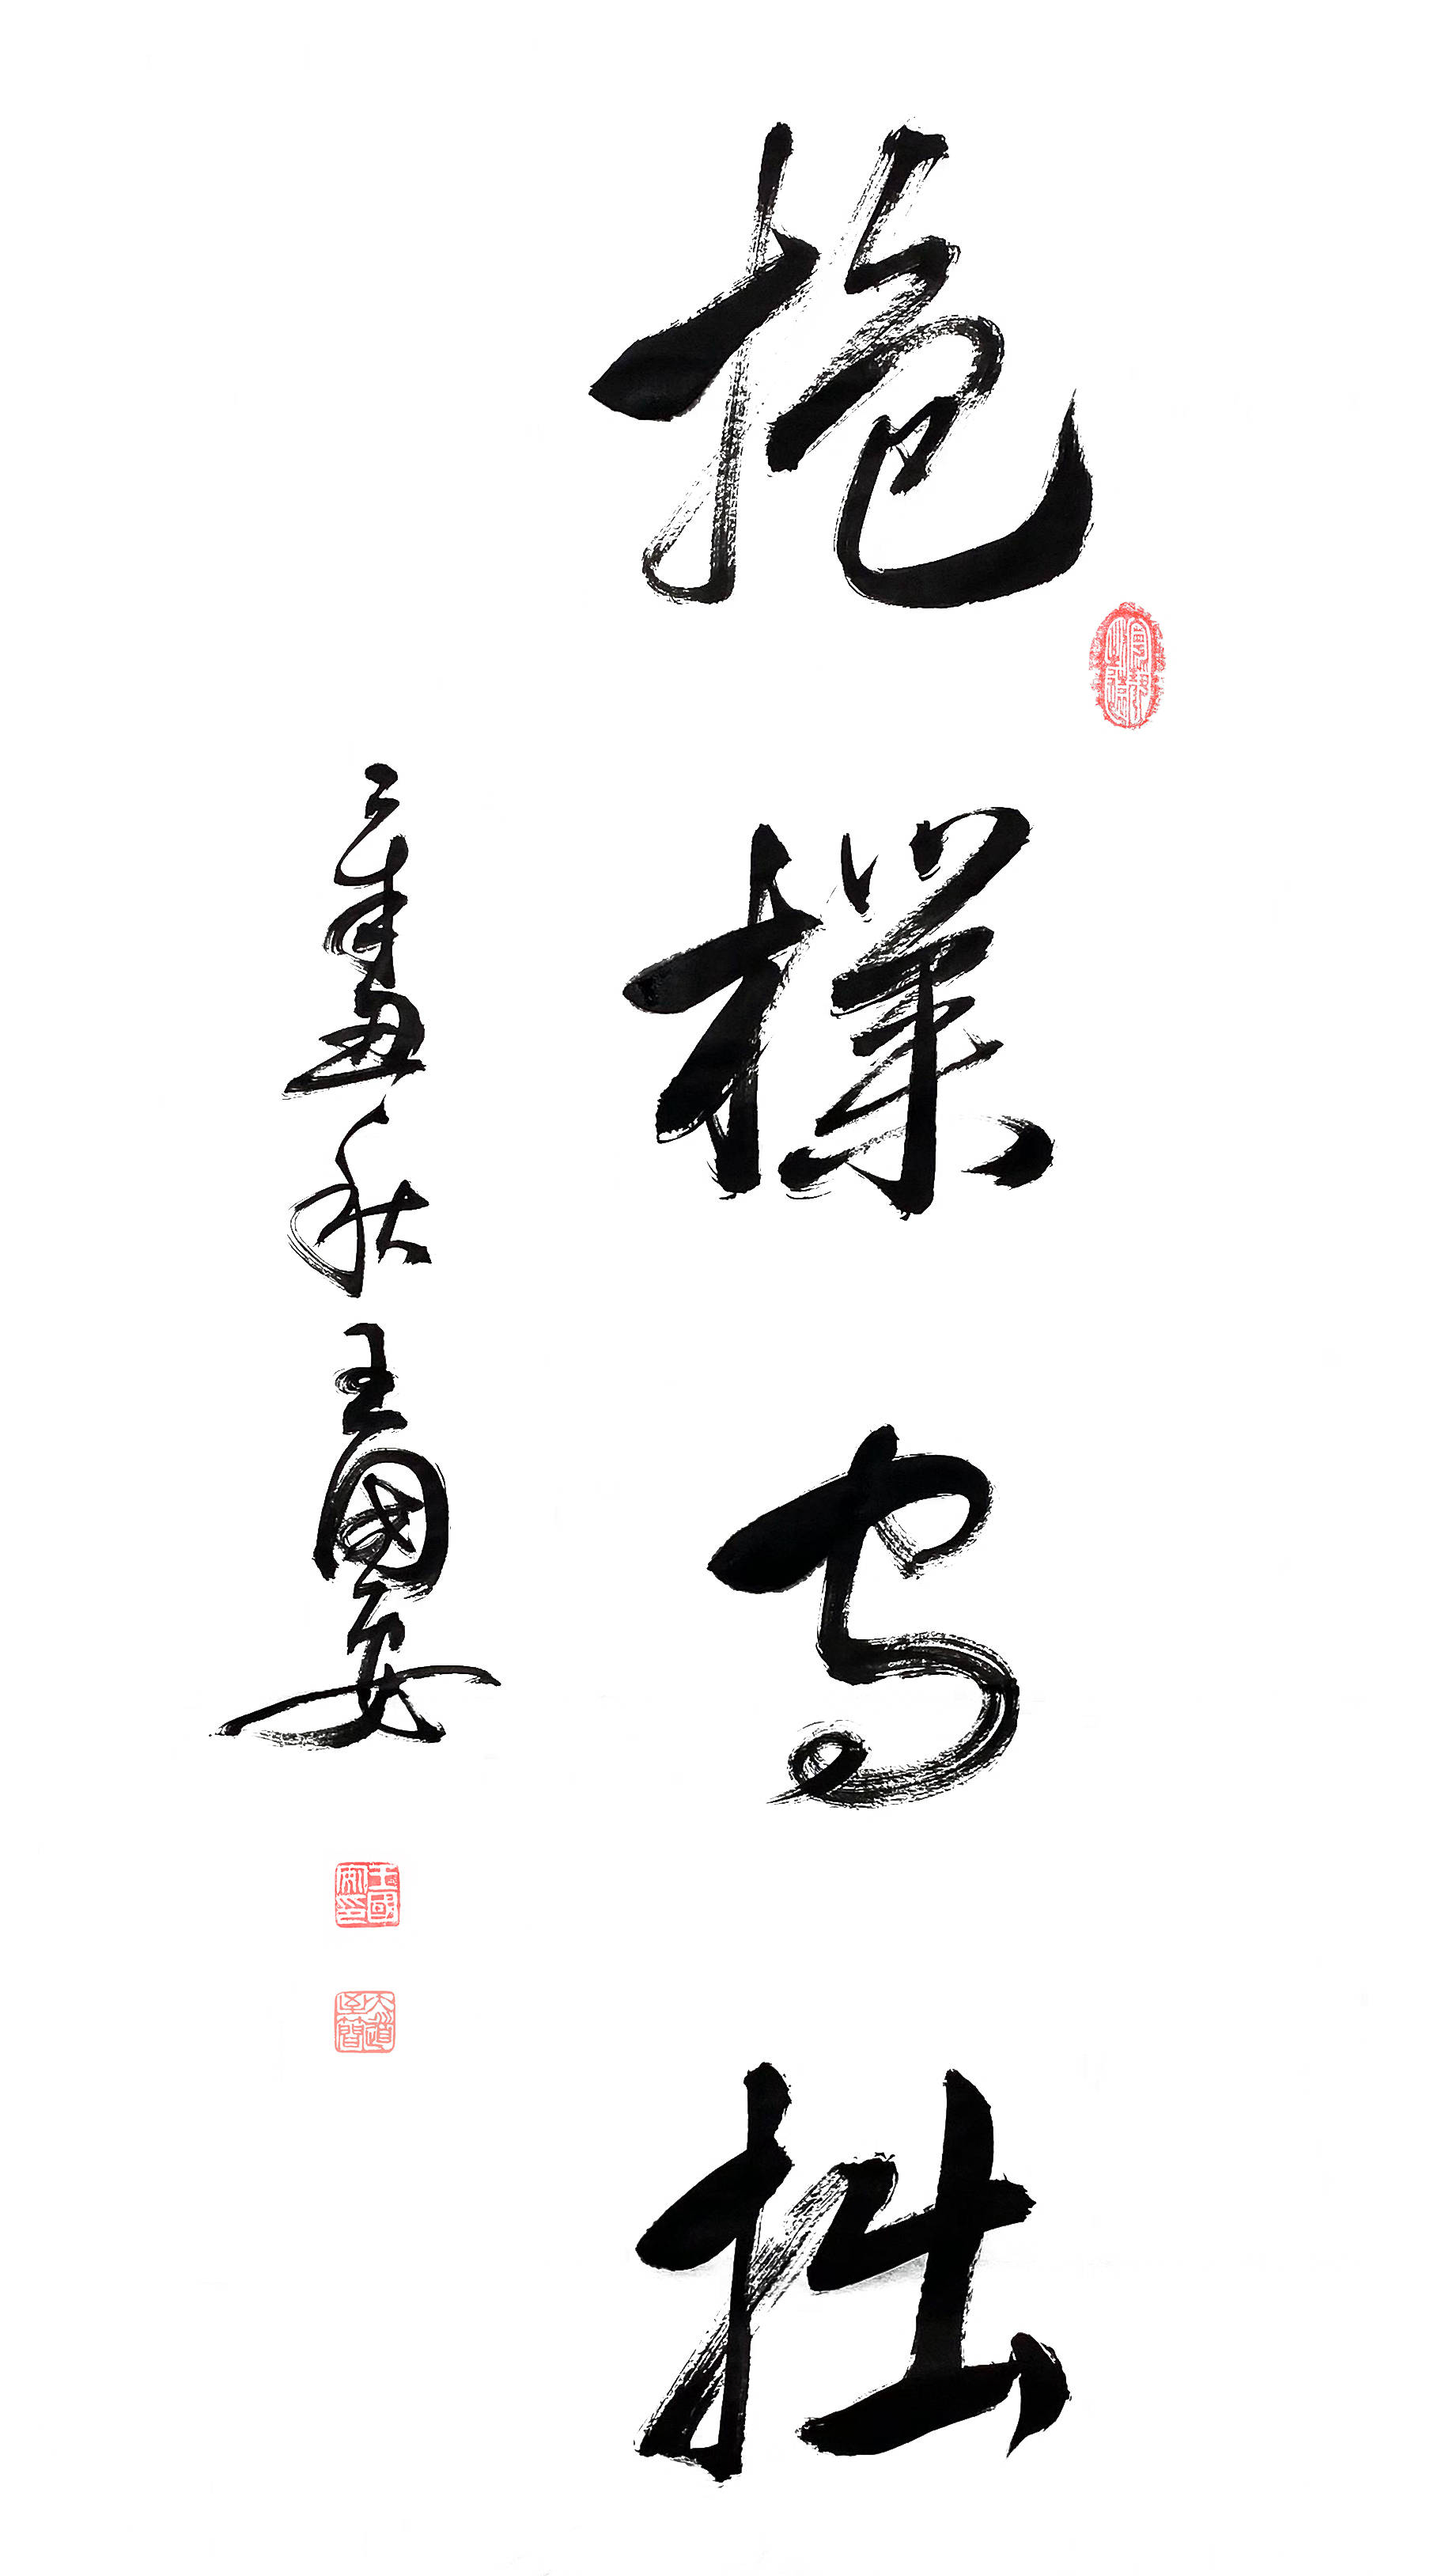 抱樸守拙
辛丑秋王國安
王國安印
大道至簡